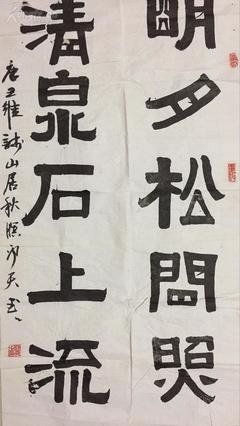 明月松間照
清泉石上流
唐王維詩山居秋暝